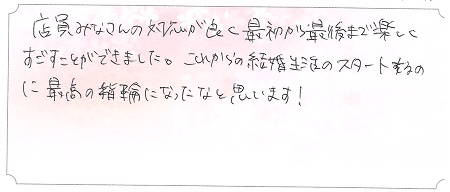 店員みなさんの対応が良く最初から最後まで楽しく
すごすことができました。これからの結婚生活のスタートするの
に最高の指輪になったなと思います!